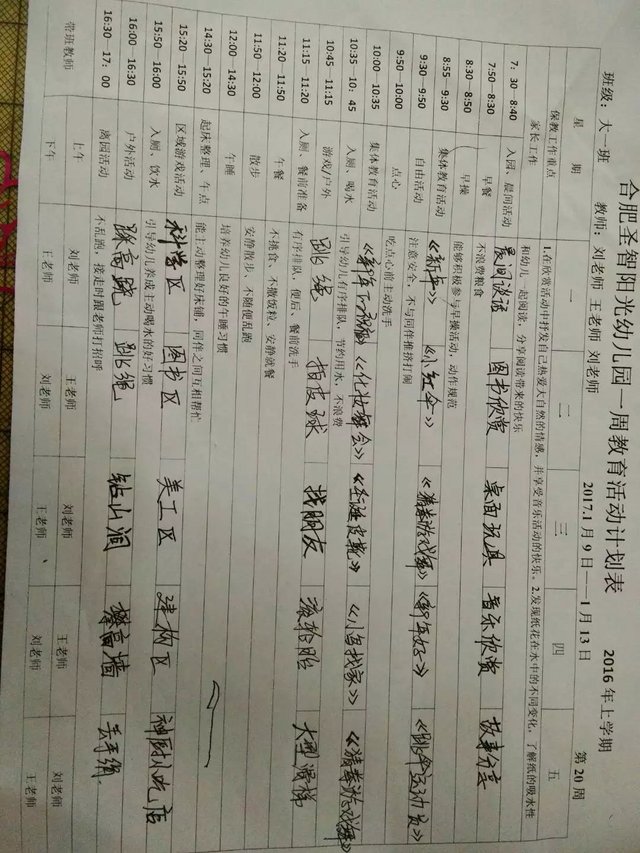 合肥圣智阳光幼儿园一周教育活动计划表
2016年上学期
班级：大一班 教师：刘老师 王老师 刘老师 2017.1月9日——1月13日 第20周
星 期 一 二 三 四 五
保教工作重点 1.在欣赏活动中抒发自己热爱大自然的情感，并享受音乐活动的快乐。2.发现纸花在水中的不同变化，了解纸的吸水性
家长工作 和幼儿一起阅读，分享阅读带来的快乐
7：30-8:40 入园、晨间活动 晨间谈话 图书欣赏 桌面玩具 音乐欣赏 故事分享
7:50-8:30 早餐 不浪费粮食
8:30-8:50 早操 能够积极参与早操活动，动作规范
8:55-9:30 集体教育活动 《新年》 《小红伞》 《猜拳游戏舞》 《新年好》 《跳伞运动员》
9:30-9:50 自由活动 注意安全，不与同伴推挤打闹
9:50-10:00 点心 吃点心前主动洗手
10:00-10:35 集体教育活动 《化妆舞会》 《圣诞皮靴》 《小鸟找家》 《猜拳游戏舞》
10:35-10：45 入厕、喝水 引导幼儿有序排队，节约用水，不浪费
10:45-11:15 游戏/户外 跳绳 拍皮球 找朋友 滚轮胎 大型滑梯
11:15-11:20 入厕、餐前准备 有序排队，便后、餐前洗手
11:20-11:50 午餐 不挑食、不撒饭粒、安静就餐
11:50-12:00 散步 安静散步、不随便乱跑
12:00-14:30 午睡 培养幼儿良好的午睡习惯
14:30-15:20 起床整理、午点 能主动整理好床铺，同伴之间互相帮忙
15:20-15:50 区域游戏活动 科学区 图书区 美工区 建构区 神厨小吃店
15:50-16:00 入厕、饮水 引导幼儿养成主动喝水的好习惯
16:00-16:30 户外活动 跳高跷 跳绳 钻山洞 攀高墙 丢手绢
16:30-17：00 离园活动 不乱跑，接走时跟老师打招呼
带班教师 上午 刘老师 王老师 刘老师 王老师 刘老师
下午 王老师 刘老师 王老师 刘老师 王老师